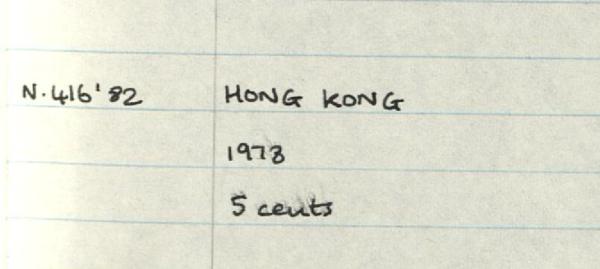 N.416'82 HONG KONG
1978
5 cents